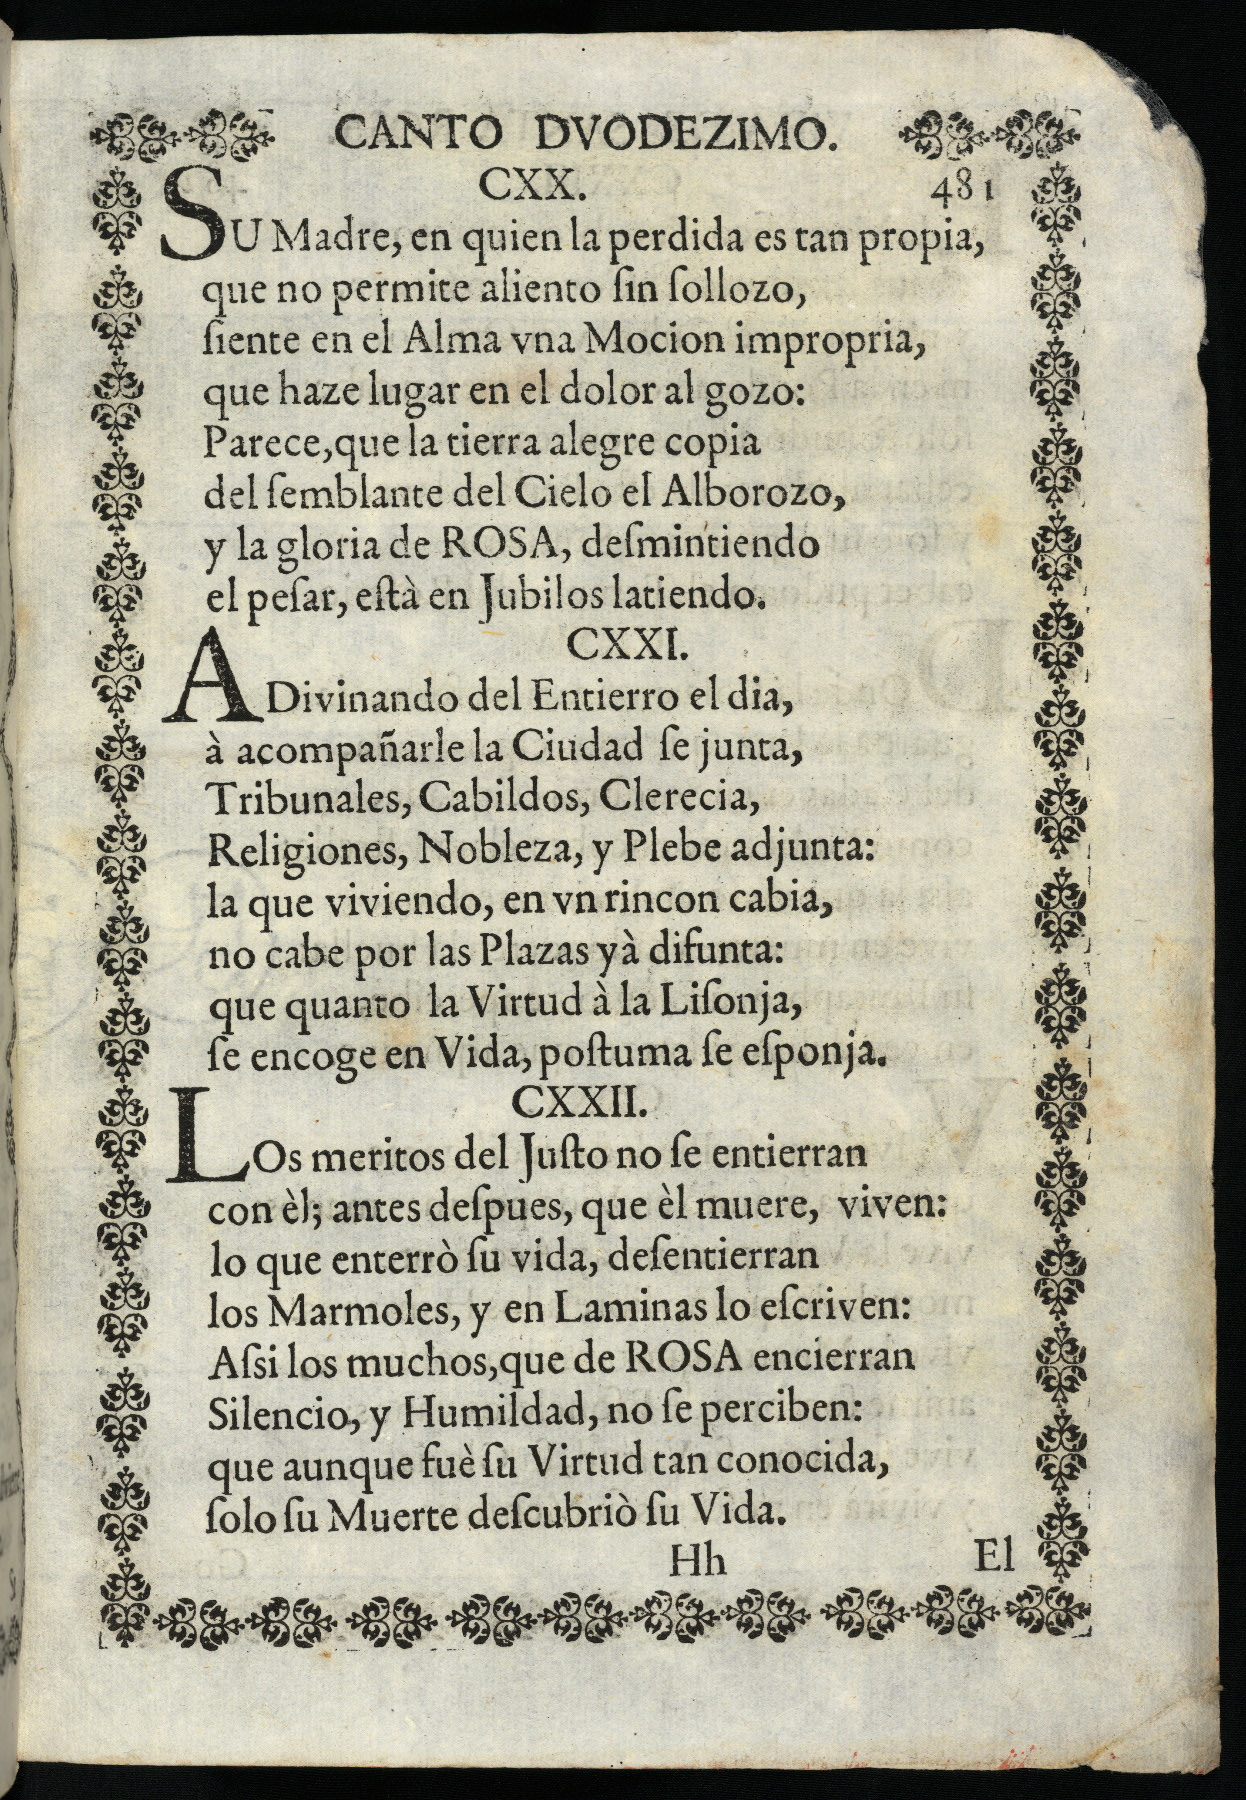 CANTO DVODEZIMO.
CXX. 481
SU Madre, en quien la perdida es tan propia,
que no permite aliento ſin ſollozo,
ſiente en el Alma vna Mocion impropria,
que haze lugar en el dolor al gozo:
Parece,que la tierra alegre copia
del ſemblante del Cielo el Alborozo,
y la gloria de ROSA, deſmintiendo
el peſar, eſtà en Jubilos latiendo.
CXXI.
ADivinando del Entierro el dia,
à acompañarle la Ciudad ſe junta,
Tribunales, Cabildos, Clerecia,
Religiones, Nobleza, y Plebe adjunta:
la que viviendo, en vn rincon cabia,
no cabe por las Plazas yà difunta:
que quanto la Virtud à la Liſonja,
ſe encoge en Vida, poſtuma ſe eſponja.
CXXII.
LOs meritos del Juſto no ſe entierran
con èl; antes deſpues, que èl muere, viven:
lo que enterrò ſu vida, deſentierran
los Marmoles, y en Laminas lo eſcriven:
Aſsi los muchos,que de ROSA encierran
Silencio, y Humildad, no ſe perciben:
que aunque fuè ſu Virtud tan conocida,
ſolo ſu Muerte deſcubriò ſu Vida.
Hh El